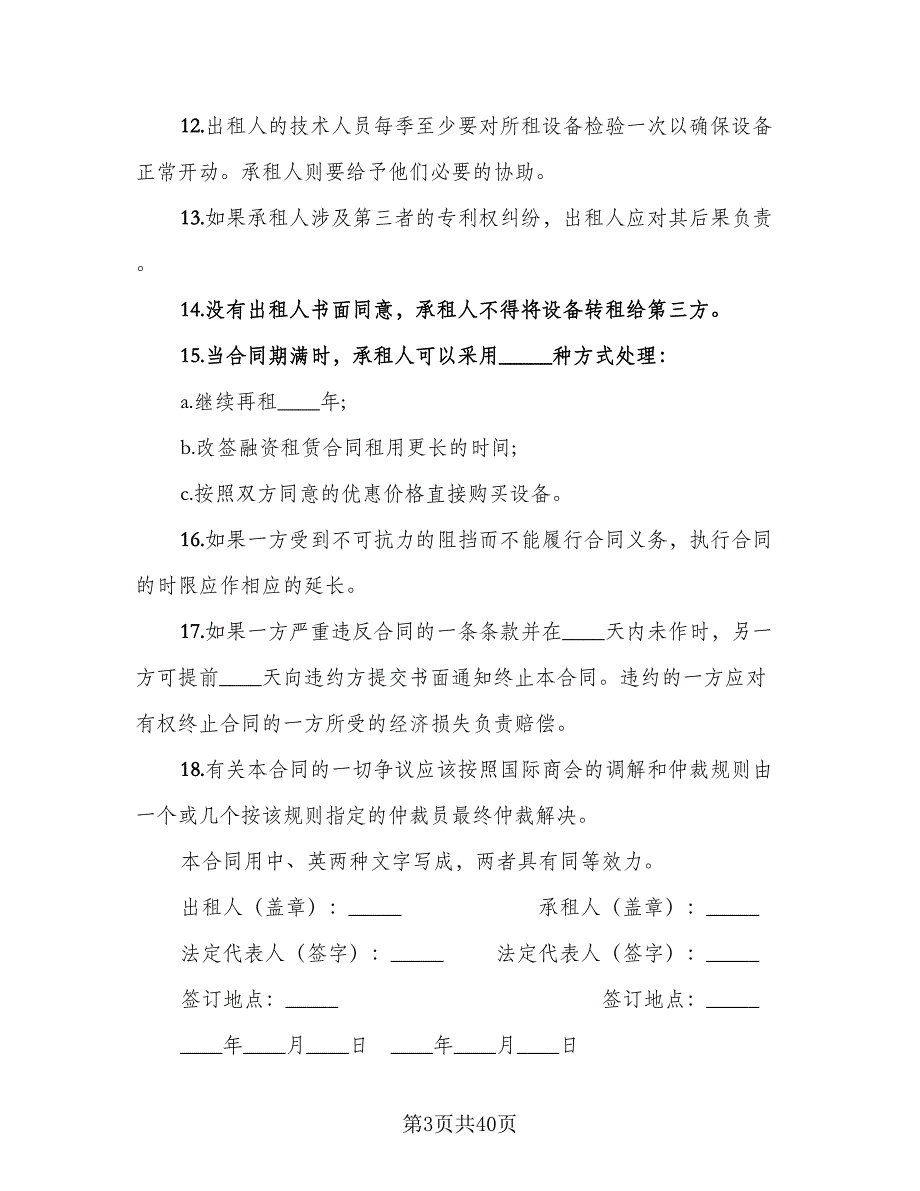 12.出租人的技术人员每季至少要对所租设备检验一次以确保设备
正常开动。承租人则要给予他们必要的协助。
13.如果承租人涉及第三者的专利权纠纷，出租人应对其后果负责
。
14.没有出租人书面同意，承租人不得将设备转租给第三方。
15.当合同期满时，承租人可以采用_____种方式处理：
a.继续再租____年;
b.改签融资租赁合同租用更长的时间;
c.按照双方同意的优惠价格直接购买设备。
16.如果一方受到不可抗力的阻挡而不能履行合同义务，执行合同
的时限应作相应的延长。
17.如果一方严重违反合同的一条条款并在____天内未作时，另一
方可提前____天向违约方提交书面通知终止本合同。违约的一方应对
有权终止合同的一方所受的经济损失负责赔偿。
18.有关本合同的一切争议应该按照国际商会的调解和仲裁规则由
一个或几个按该规则指定的仲裁员最终仲裁解决。
本合同用中、英两种文字写成，两者具有同等效力。
出租人（盖章）：_____ 承租人（盖章）：_____
法定代表人（签字）：_____ 法定代表人（签字）：_____
签订地点：_____ 签订地点：_____
____年____月____日 ____年____月____日
第3页共40页